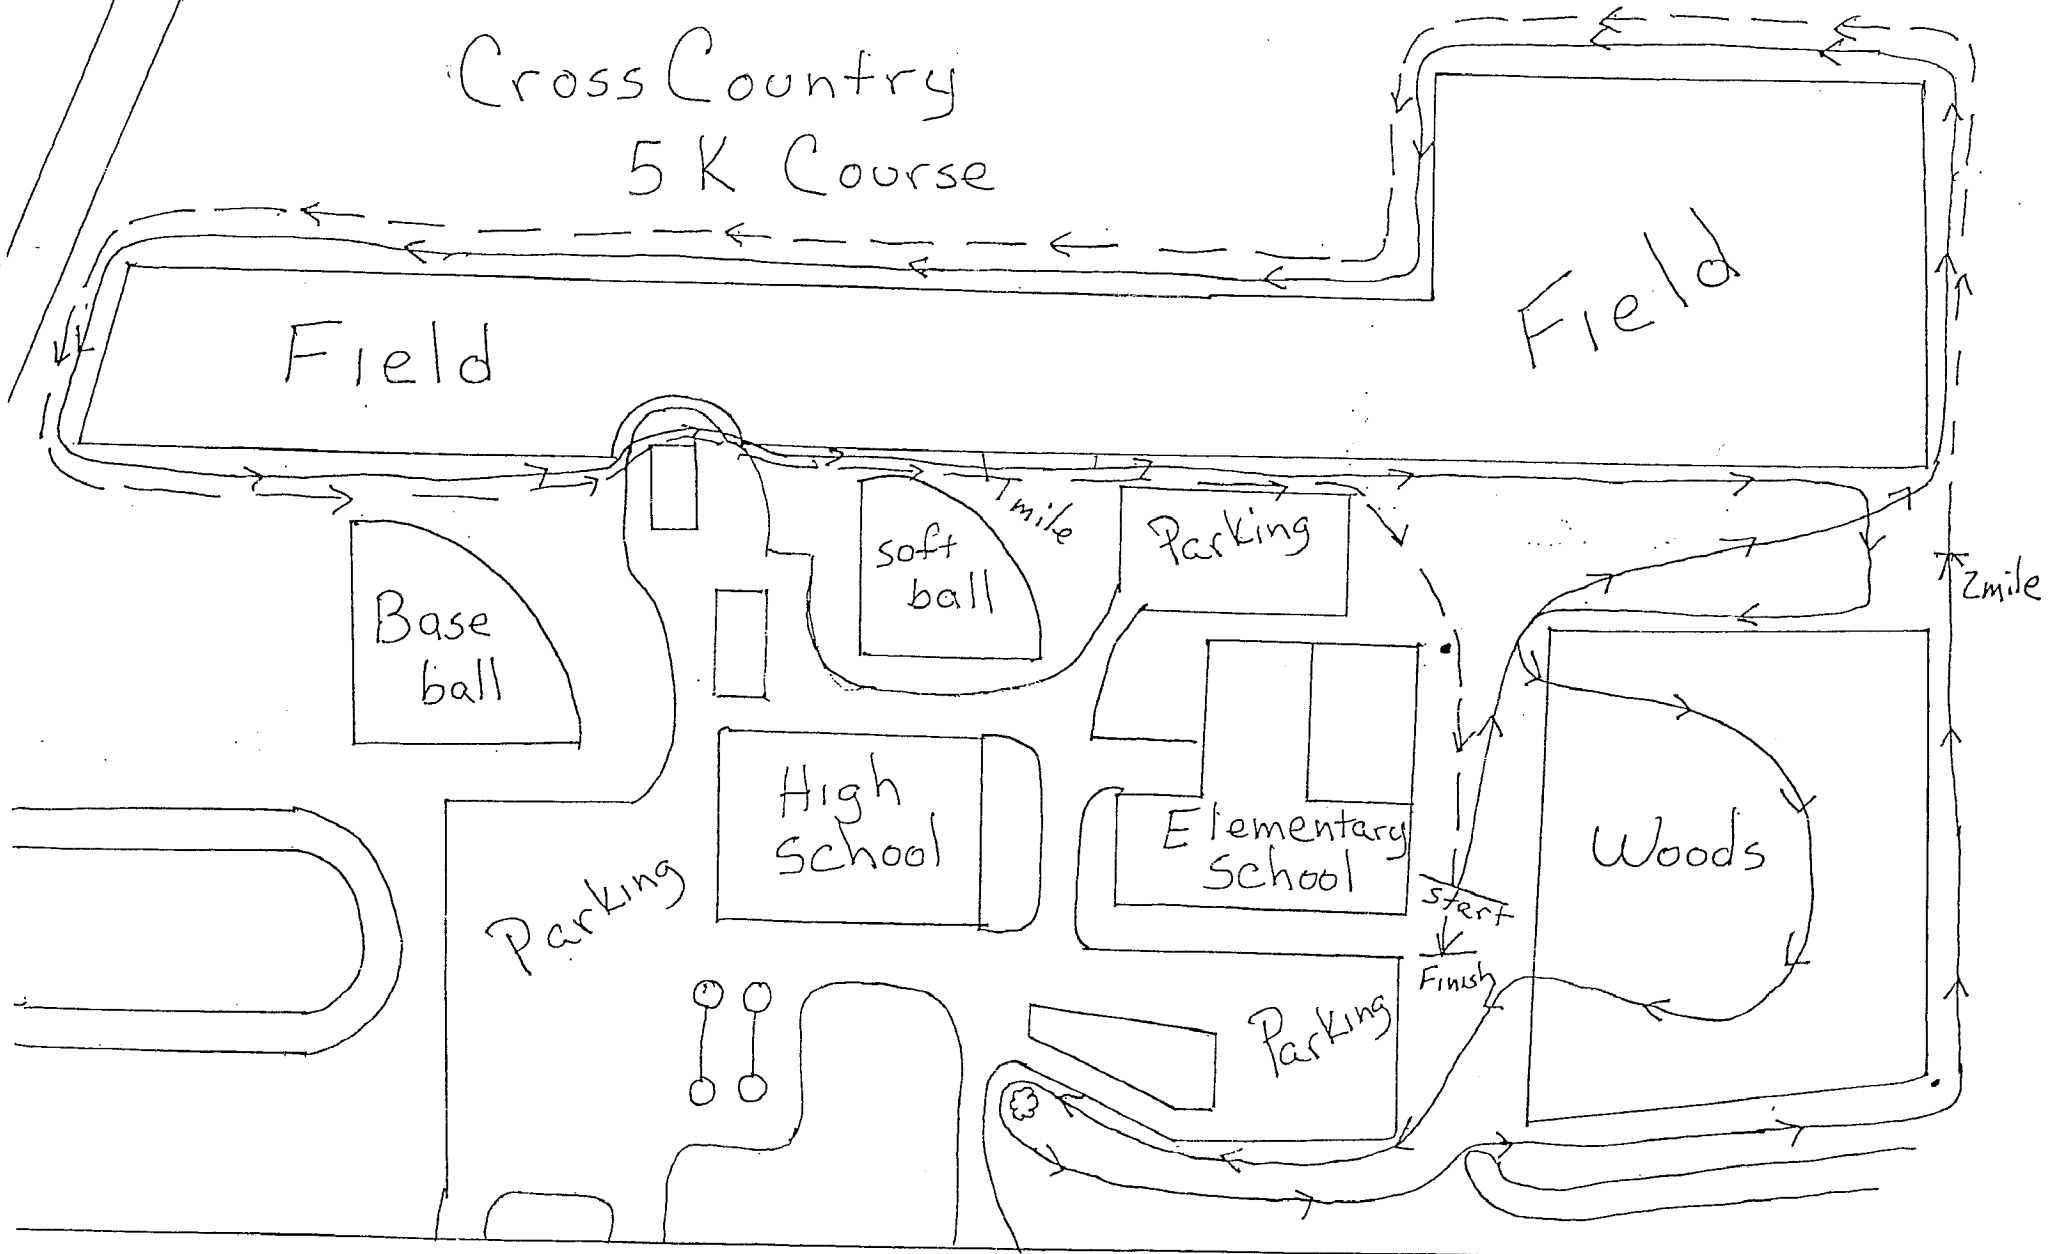 Cross Country
5 K Course
Field
Field
1 mile
Parking
soft
ball
Base
ball
2 mile
High
School
Elementary
School
Woods
Parking
Start
Finish
Parking